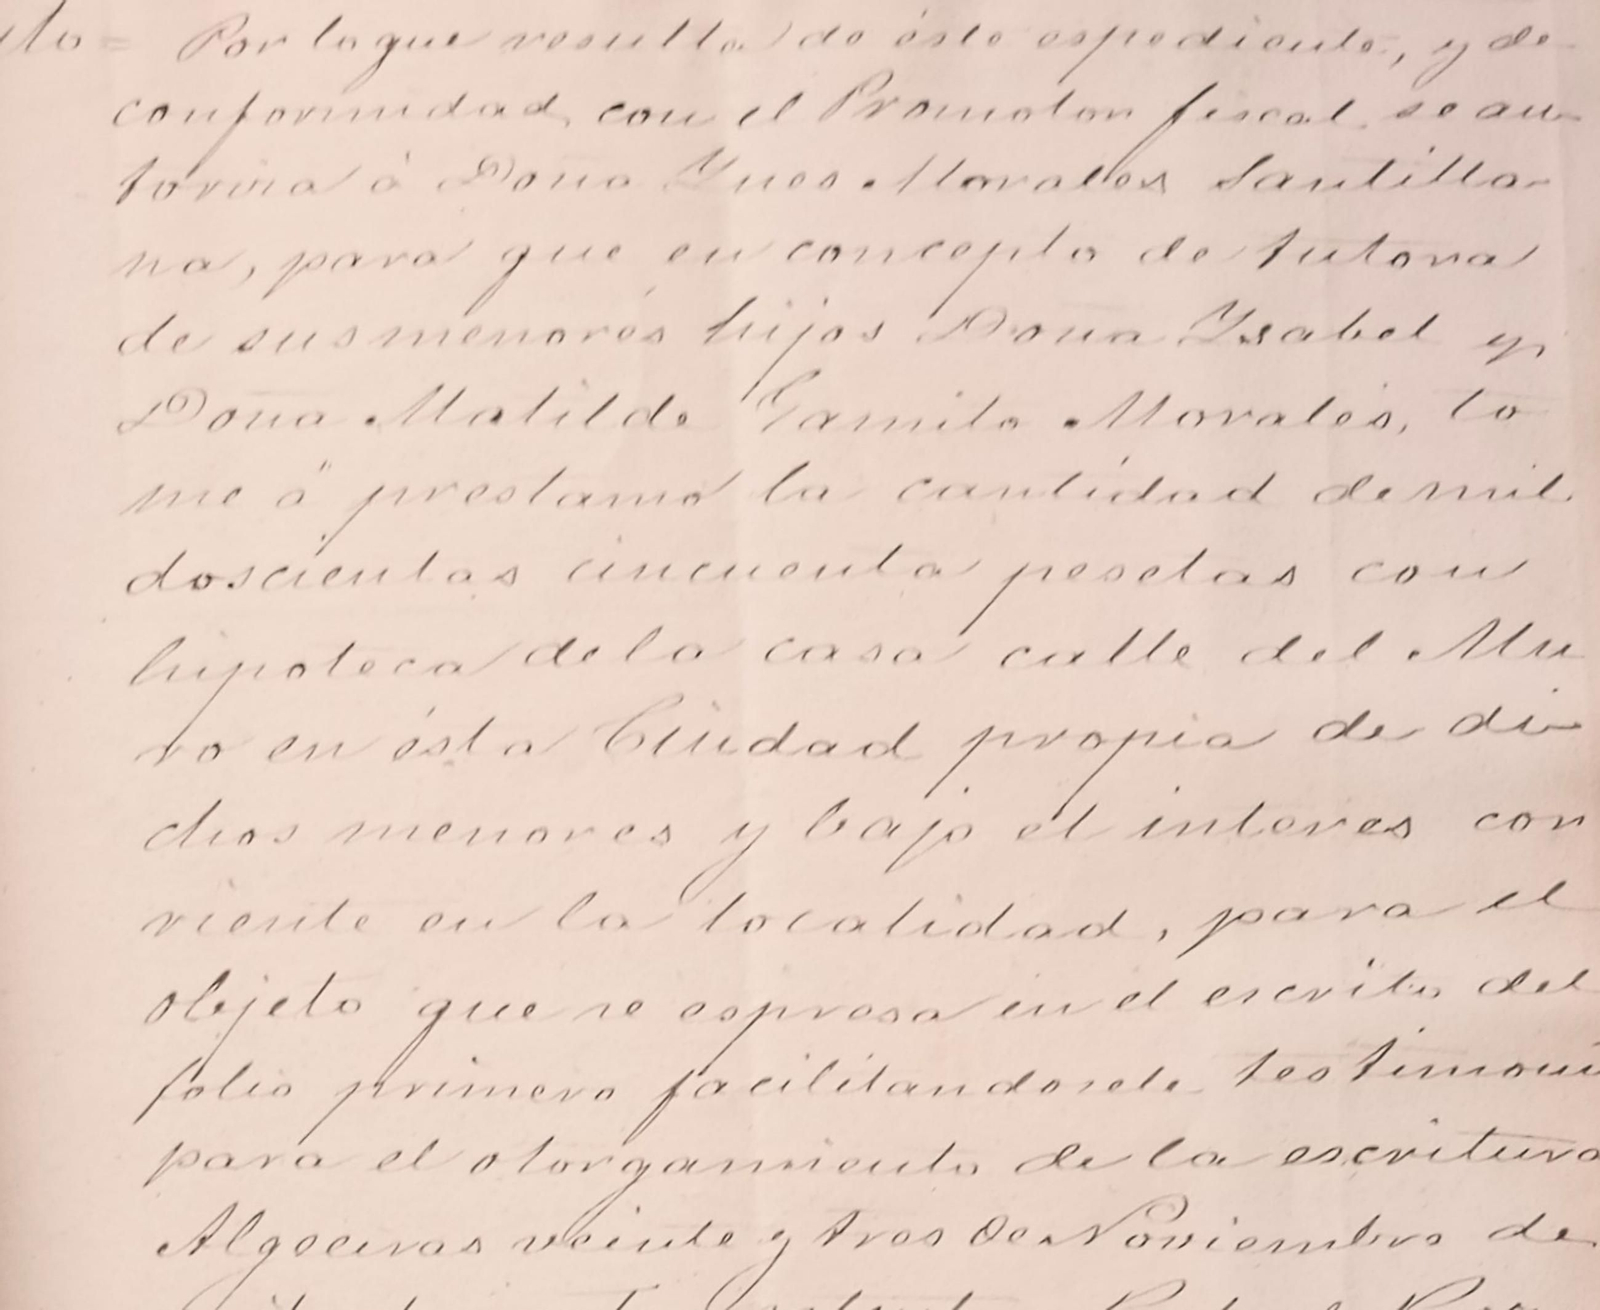 Por lo que resulta de éste espediente, y de
conformidad con el Promotor fiscal se au-
toriza á Doña Ynes Morales Santilla-
na, para que en concepto de tutora
de sus menores hijos Doña Ysabel y
Doña Matilde Gamito Morales, to
me á prestamo la cantidad de mil
doscientas cincuenta pesetas con
hipoteca de la casa calle del Mu
ro en ésta Ciudad propia de di-
chos menores y bajo el interes cor
riente en la localidad, para el
objeto que se espresa en el escrito del
folio primero facilitandosele testimoni
para el otorgamiento de la escritura
Algeciras veinte y tres de Noviembre de